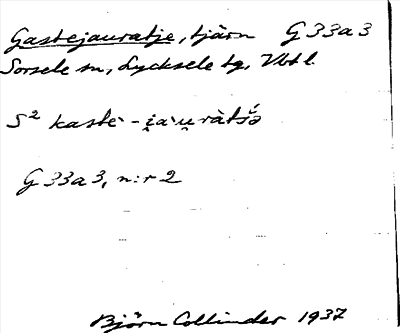 Gastejauratje, tjärn G 33a3
Sorsele sn, Lycksele tg, Vbtl.
S² kastè - i̯a·u̯ràtš́ə
G 33a3, n:r 2
Björn Collinder 1937